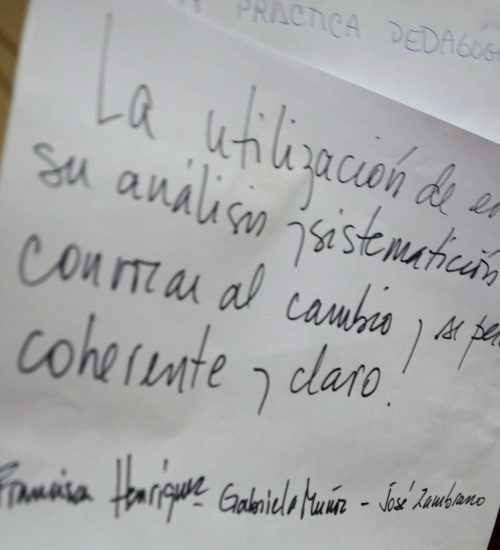 PRACTICA PEDAGÓG
La utilización de
su análisis y sistematición
al cambio y se
coherente y claro.
Francisca Henríquez Gabriela Muñoz - José Zambrano